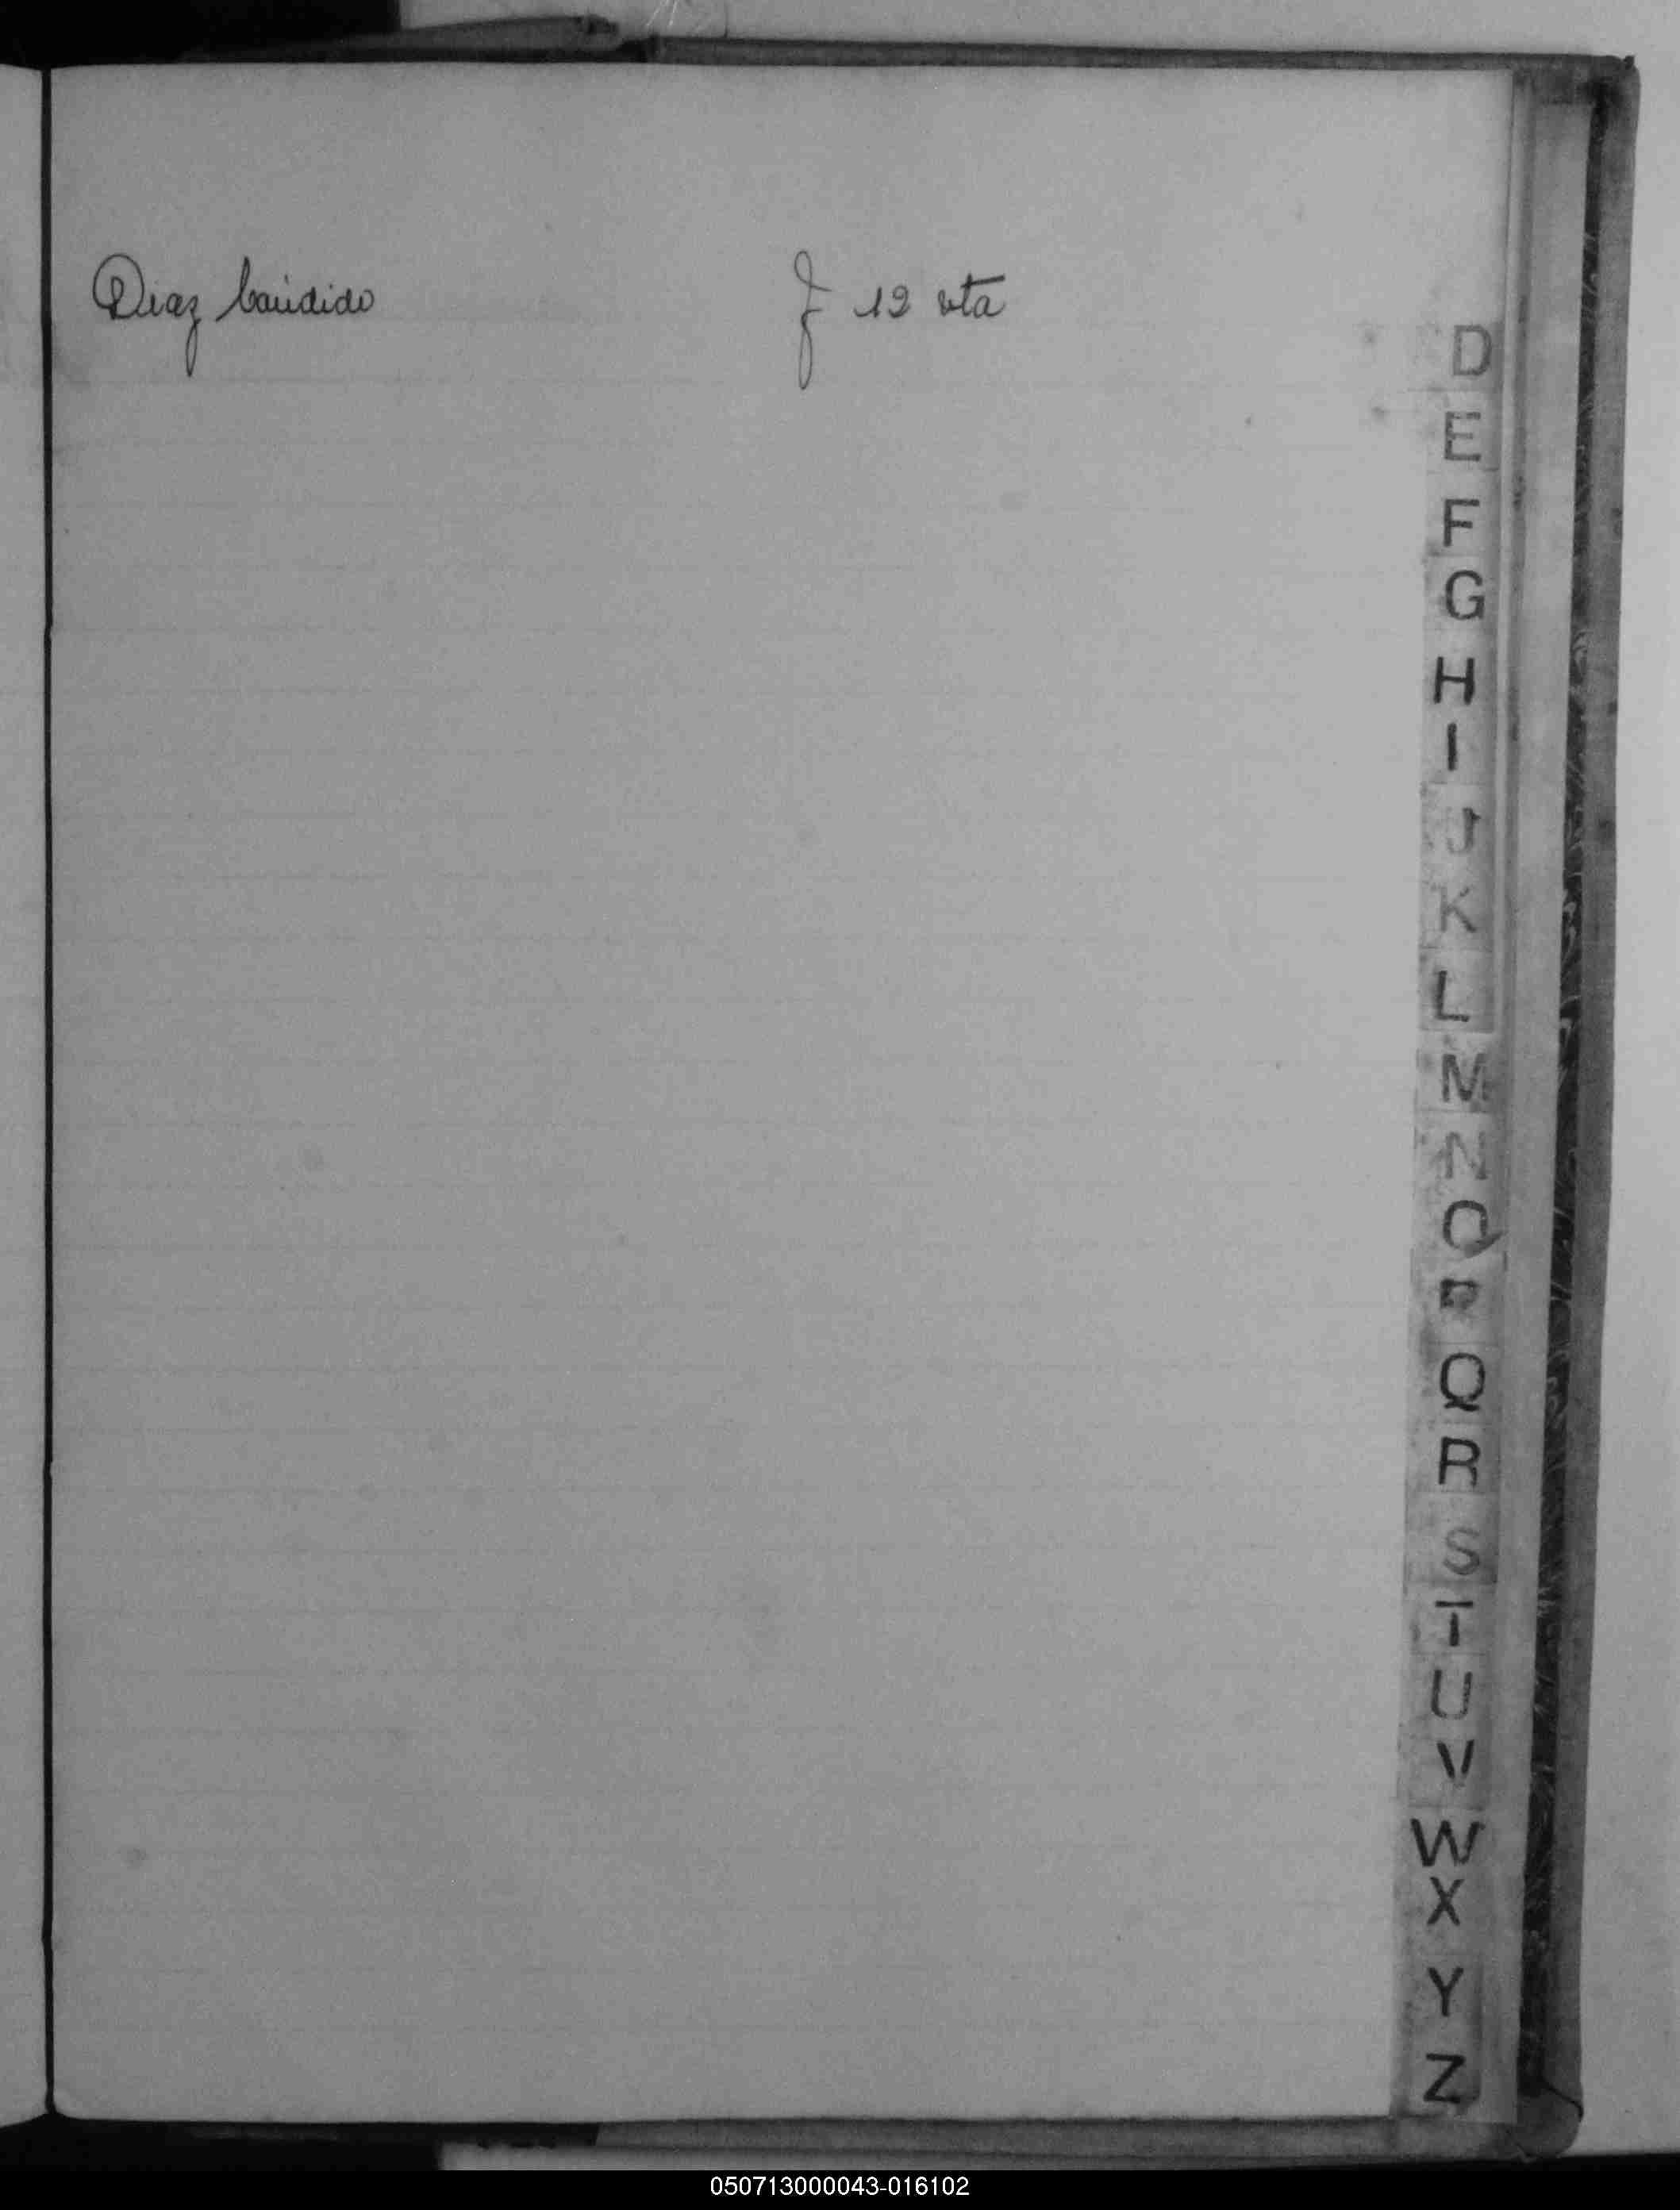 Diaz Candido f 12 vta
D
E
F
G
H
I
J
K
L
M
N
O
P
Q
R
S
T
U
V
W
X
Y
Z
050713000043-016102